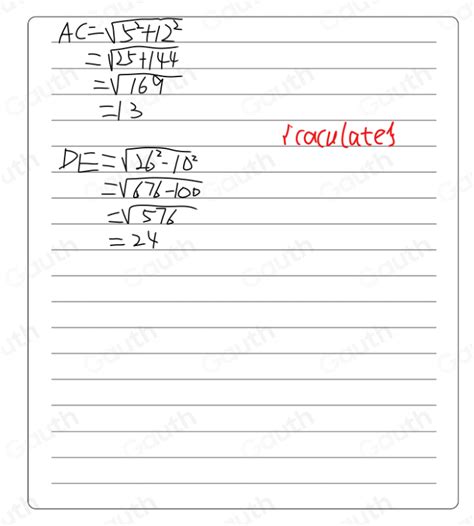 AC=√5²+12²
=√25+144
=√169
=13
{caculate}
DE=√26²-10²
=√676-100
=√576
=24
Gauth